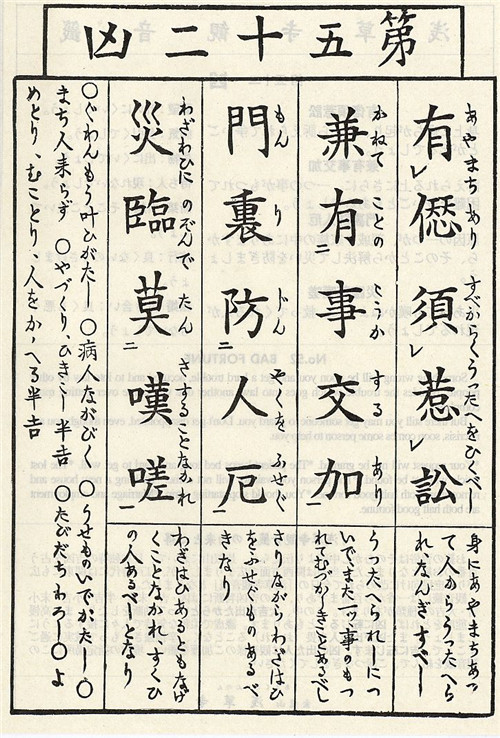 第五十二凶
あやまちあり すべからくうつたへをひくべし
有レ愆須レ惹レ訟
身にあやまちあつ
て人からうつたへら
れ、なんぎすべし
かねて ことの こうか する あり
兼有二事交加一
うつたへられしにつ
いでまた一ッ事のもつ
れてむづかしきことあるべし
もん り じん やくをふせぐ
門裏防二人厄一
さりながらわざはひ
をふせぐものあるべ
きなり
わざわひにのぞんで たんさすることなかれ
災臨莫二嘆嗟一
わざはひあるともなげ
くことなかれ、すくひ
の人あるべしとなり
○ぐわんもう叶ひがたし○病人ながびく○うせものいでがたし○
まち人来らず ○やづくり、ひきこし半吉 ○たびだちわろし○よ
めとり、むことり、人をかゝへる半吉